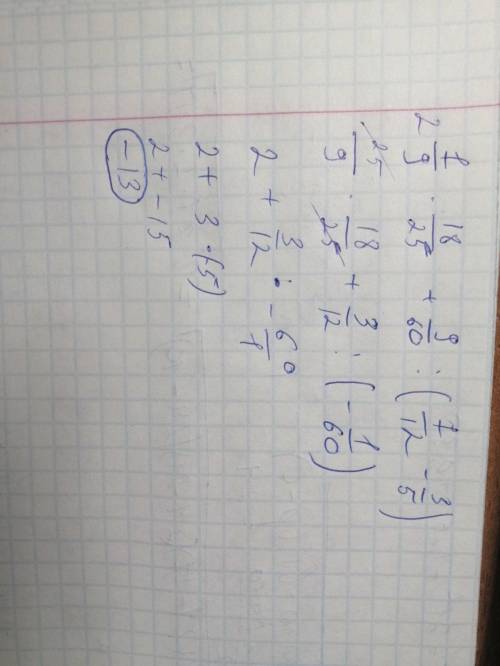 2 1/9 · 18/25 + 9/60 : (1/12 - 3/5)
25/9 · 18/25 + 3/12 : (- 1/60)
2 + 3/12 · - 60/1
2 + 3 · (5)
2 + - 15
-13